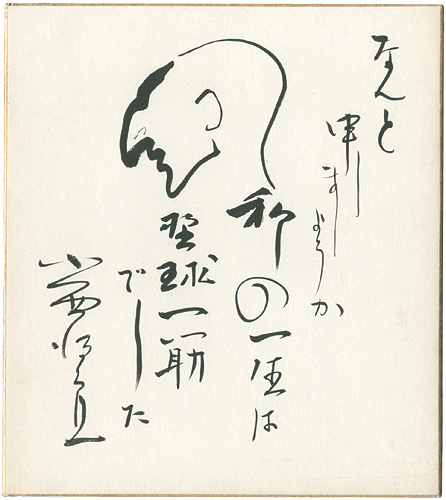 なんと
申しましょうか
私の一生は
野球一筋
でした
小西得郎